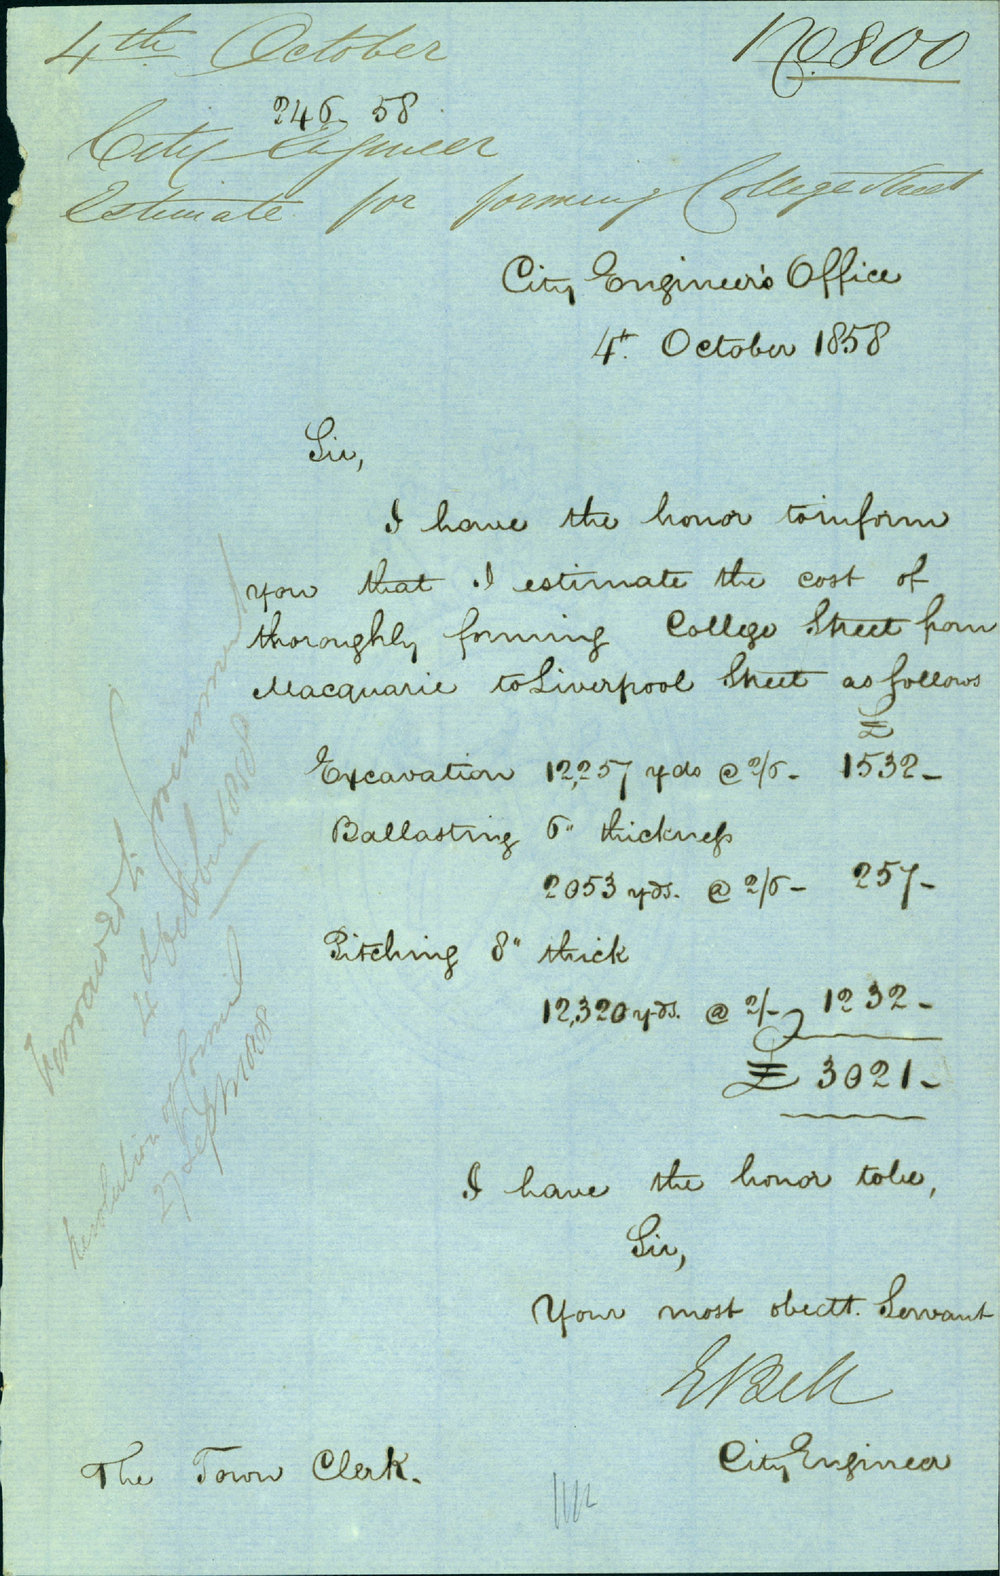 4th October
No. 800
246. 58
City Engineer
Estimate for forming College Street
City Engineer's Office
4th. October 1858
Sir,
I have the honor to inform
you that I estimate the cost of
thoroughly forming College Street from
Macquarie to Liverpool Street as follows
£
Excavation 12,257 yds @ 2/6 - 1532 -
Ballasting 6" thickness
2053 yds. @ 2/6 - 257 -
Pitching 8" thick
12,320 yds. @ 2/- 1232 -
£ 3021 -
I have the honor to be,
Sir,
Your most obedtt. Servant
E Bell
City Engineer
The Town Clerk.
4 October 1858
Resolution of Council
27 Sept 1858